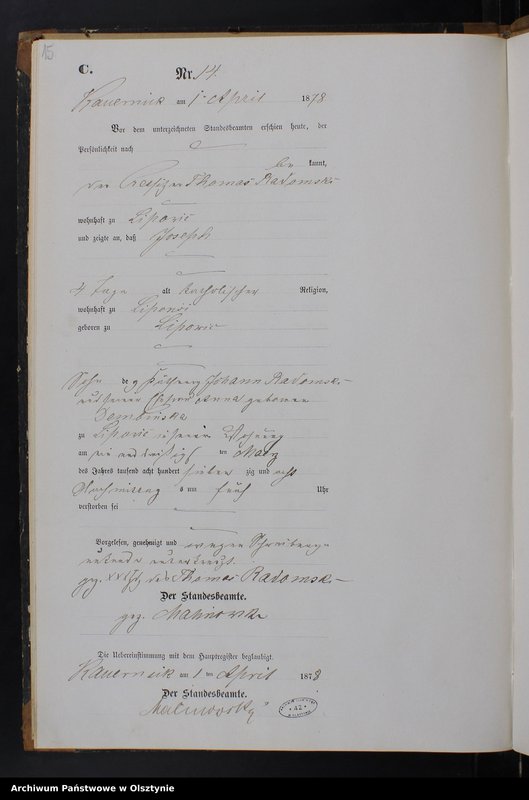 15
C.
Nr. 14.
Kauernick am 1. April 1878
Vor dem unterzeichneten Standesbeamten erschien heute, der
Persönlichkeit nach
be kannt,
der Thomas Radomski
wohnhaft zu Lipowic
und zeigte an, daß Joseph
4 Tage alt katholischer Religion,
wohnhaft zu Lipowic
geboren zu Lipowic
Sohn de Johann Radomski
Anna geborene
Dembinska
zu Lipowic in seiner Wohnung
am ein und dreißigsten März
des Jahres tausend acht hundert sieben zig und acht
Nachmittag um fünf Uhr
verstorben sei
Vorgelesen, genehmigt und wegen Schreibens-
unkunde unterkreuzt.
gez. XXX des Thomas Radomski
Der Standesbeamte.
gez. Malinowski
Die Uebereinstimmung mit dem Hauptregister beglaubigt.
Kauernick am 1 ten April 1878
Der Standesbeamte.
Malinowsky
42
Archiwum Państwowe w Olsztynie